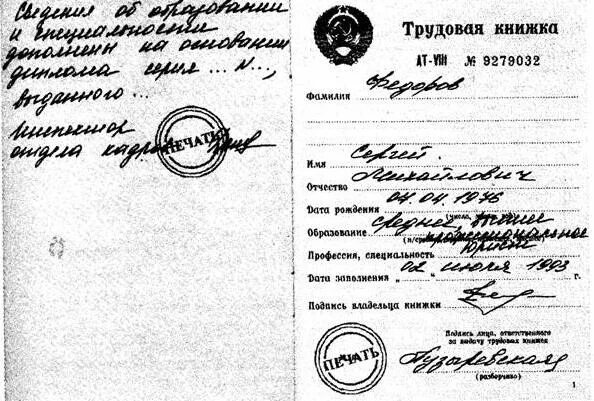 Сведения об образовании
и специальности
дополнены на основании
диплома серия ... N ...,
выданного ...
Инспектор
отдела кадров
ПЕЧАТЬ
Трудовая книжка
АТ-VIII № 9279032
Фамилия Федоров
Имя Сергей
Отчество Михайлович
Дата рождения 04.04.1976
Образование среднее, высшее
профессиональное
Профессия, специальность юрист
Дата заполнения „02" июля 1993 г.
Подпись владельца книжки
Подпись лица, ответственного
за выдачу трудовых книжек
Пузыревская
(разборчиво)
ПЕЧАТЬ
1